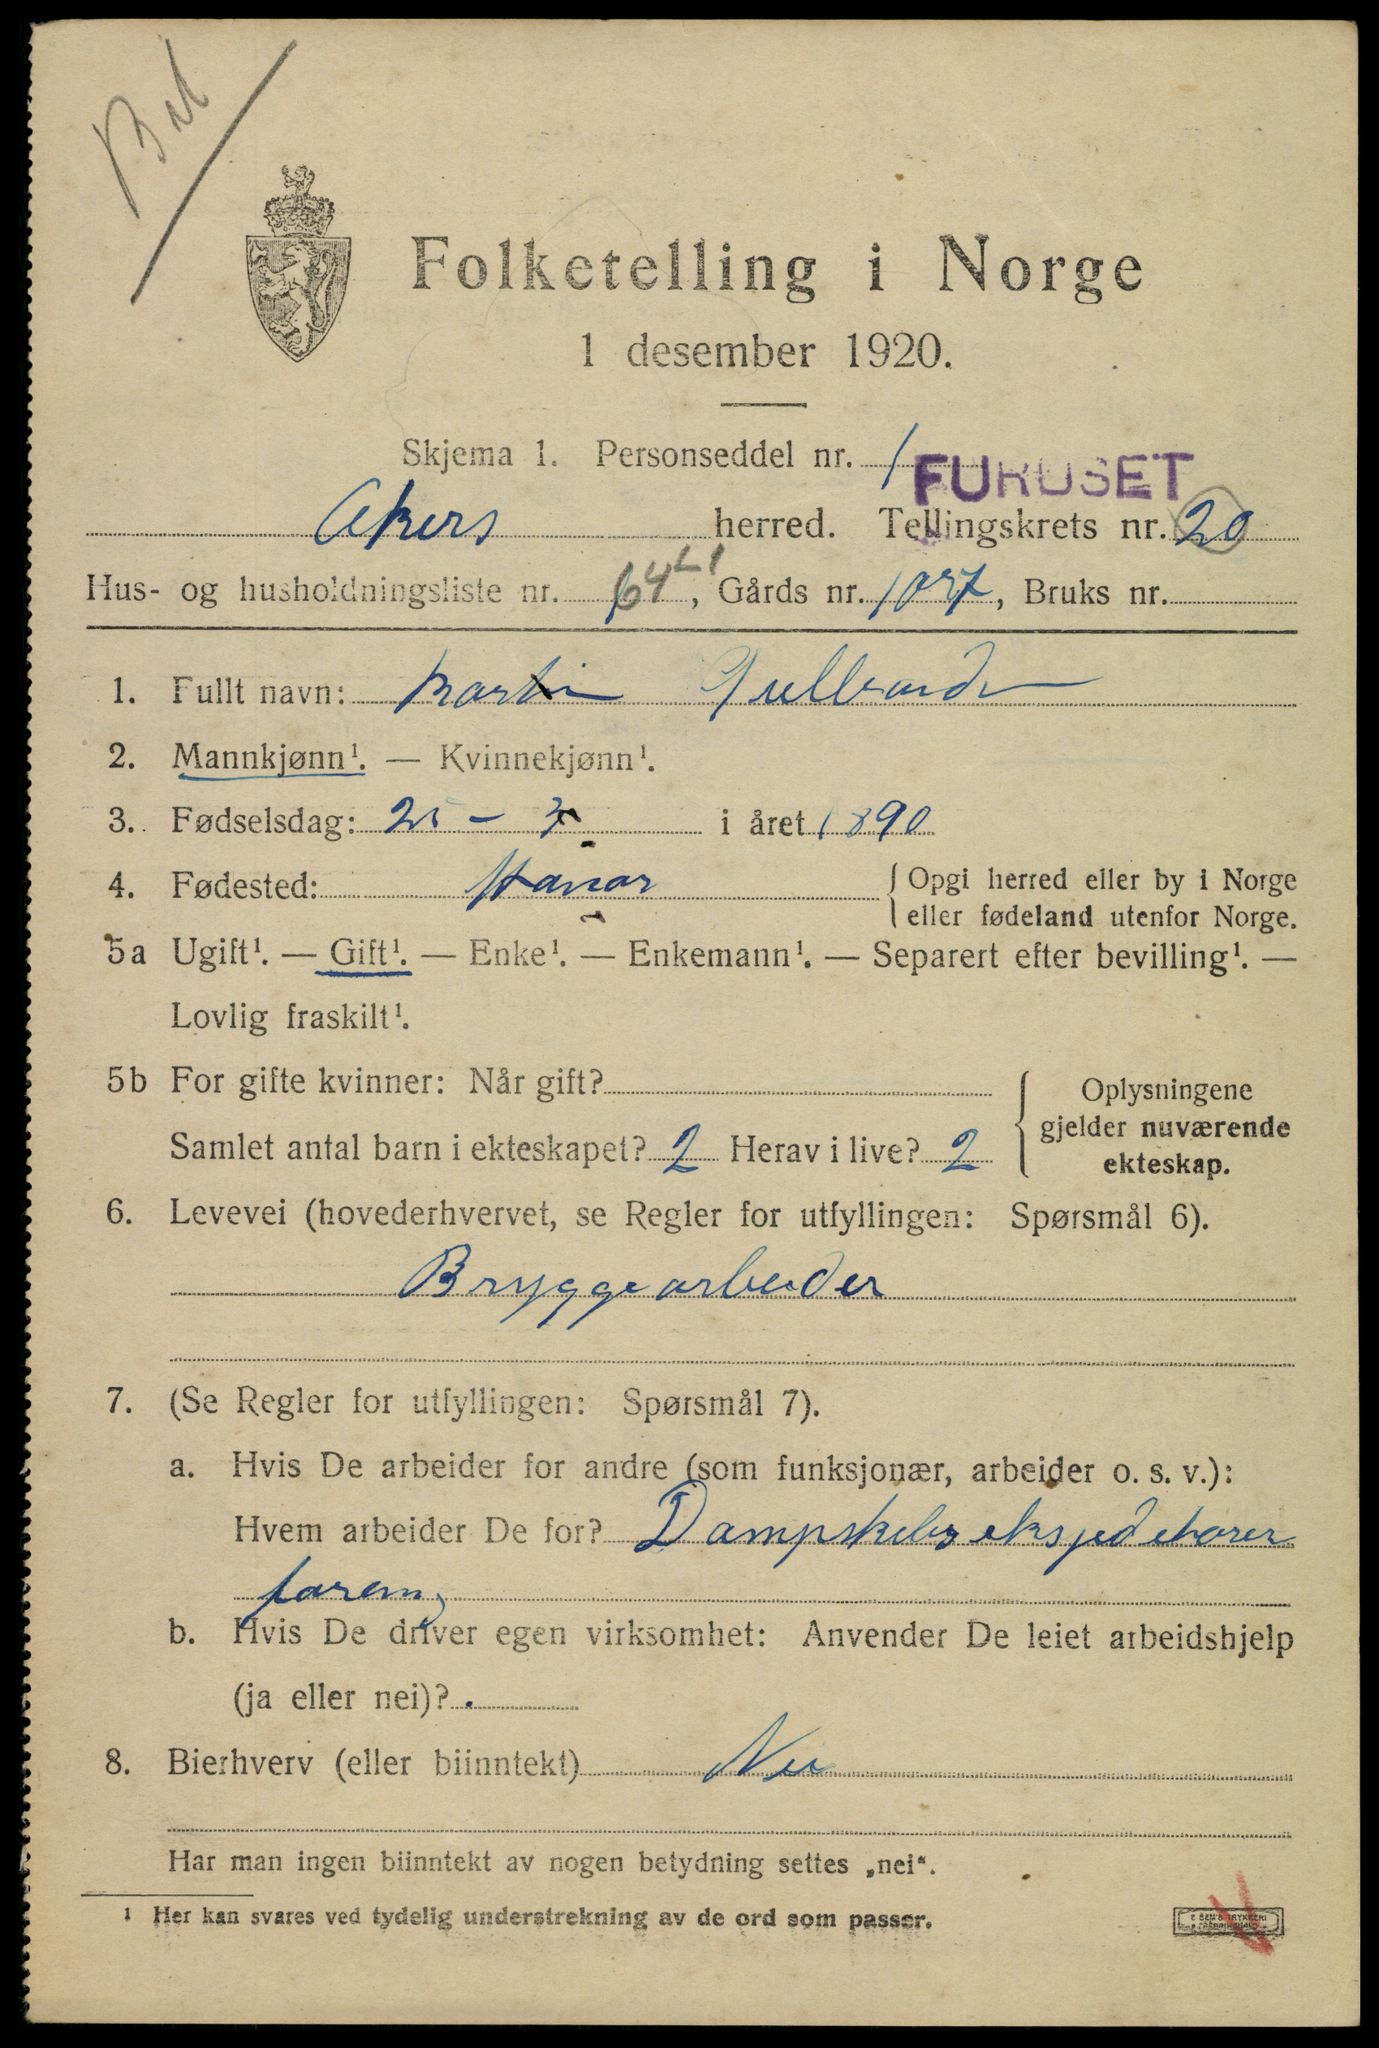 Folketelling i Norge
1 desember 1920.
Skjema 1. Personseddel nr. 1
FURUSET
Akers herred. Tellingskrets nr. 20
Hus- og husholdningsliste nr. 64, Gårds nr., Bruks nr.
1. Fullt navn: Martin
2. Mannkjønn¹. — Kvinnekjønn¹.
3. Fødselsdag: 25 - 3 i året 1890
4. Fødested: Hamar
{ Opgi herred eller by i Norge
eller fødeland utenfor Norge.
5a Ugift¹. — Gift¹. — Enke¹. — Enkemann¹. — Separert efter bevilling¹. —
Lovlig fraskilt¹.
5b For gifte kvinner: Når gift?
Samlet antal barn i ekteskapet? 2 Herav i live? 2
{ Oplysningene
gjelder nuværende
ekteskap.
6. Levevei (hovederhvervet, se Regler for utfyllingen: Spørsmål 6).
Bryggearbeider
7. (Se Regler for utfyllingen: Spørsmål 7).
a. Hvis De arbeider for andre (som funksjonær, arbeider o. s. v.):
Hvem arbeider De for? Dampskibsekspeditører
foren,
b. Hvis De driver egen virksomhet: Anvender De leiet arbeidshjelp
(ja eller nei)? .
8. Bierhverv (eller biinntekt) Nei
Har man ingen biinntekt av nogen betydning settes „nei“.
¹ Her kan svares ved tydelig understrekning av de ord som passer.